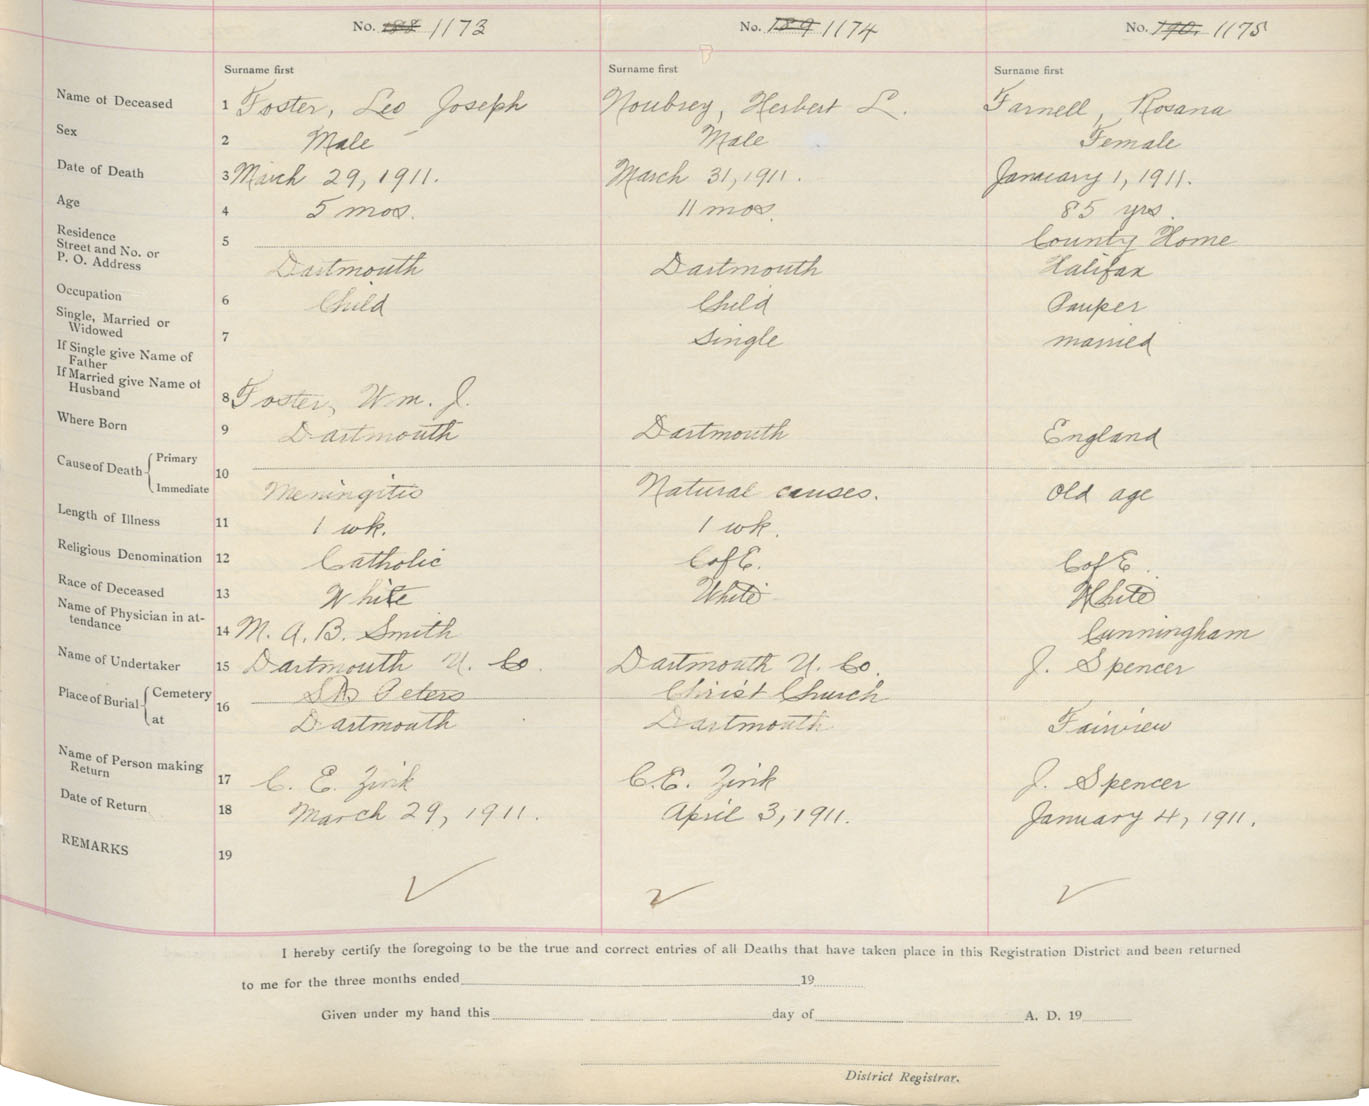 No. 188 1173 No. 189 1174 No. 190. 1175
Surname first Surname first Surname first
Name of Deceased 1 Foster, Leo Joseph Noubrey, Herbert L. Farnell, Rosana
Sex 2 Male Male Female
Date of Death 3 March 29, 1911. March 31, 1911. January 1, 1911.
Age 4 5 mos. 11 mos. 85 yrs.
Residence
Street and No. or 5 County Home
P. O. Address Dartmouth Dartmouth Halifax
Occupation 6 Child Child Pauper
Single, Married or
Widowed 7 Single married
If Single give Name of
Father
If Married give Name of
Husband 8 Foster, Wm. J.
Where Born 9 Dartmouth Dartmouth England
Cause of Death Primary 10
Immediate Meningitis Natural causes. Old age
Length of Illness 11 1 wk. 1 wk.
Religious Denomination 12 Catholic C of E. C of E.
Race of Deceased 13 White White White
Name of Physician in at-
tendance 14 M. A. B. Smith Cunningham
Name of Undertaker 15 Dartmouth U. Co. Dartmouth U. Co. J. Spencer
Place of Burial Cemetery 16 St Peters Christ Church
at Dartmouth Dartmouth Fairview
Name of Person making
Return 17 C. E. Zink C. E. Zink J. Spencer
Date of Return 18 March 29, 1911. April 3, 1911. January 4, 1911.
REMARKS 19
I hereby certify the foregoing to be the true and correct entries of all Deaths that have taken place in this Registration District and been returned
to me for the three months ended 19
Given under my hand this day of A. D. 19
District Registrar.